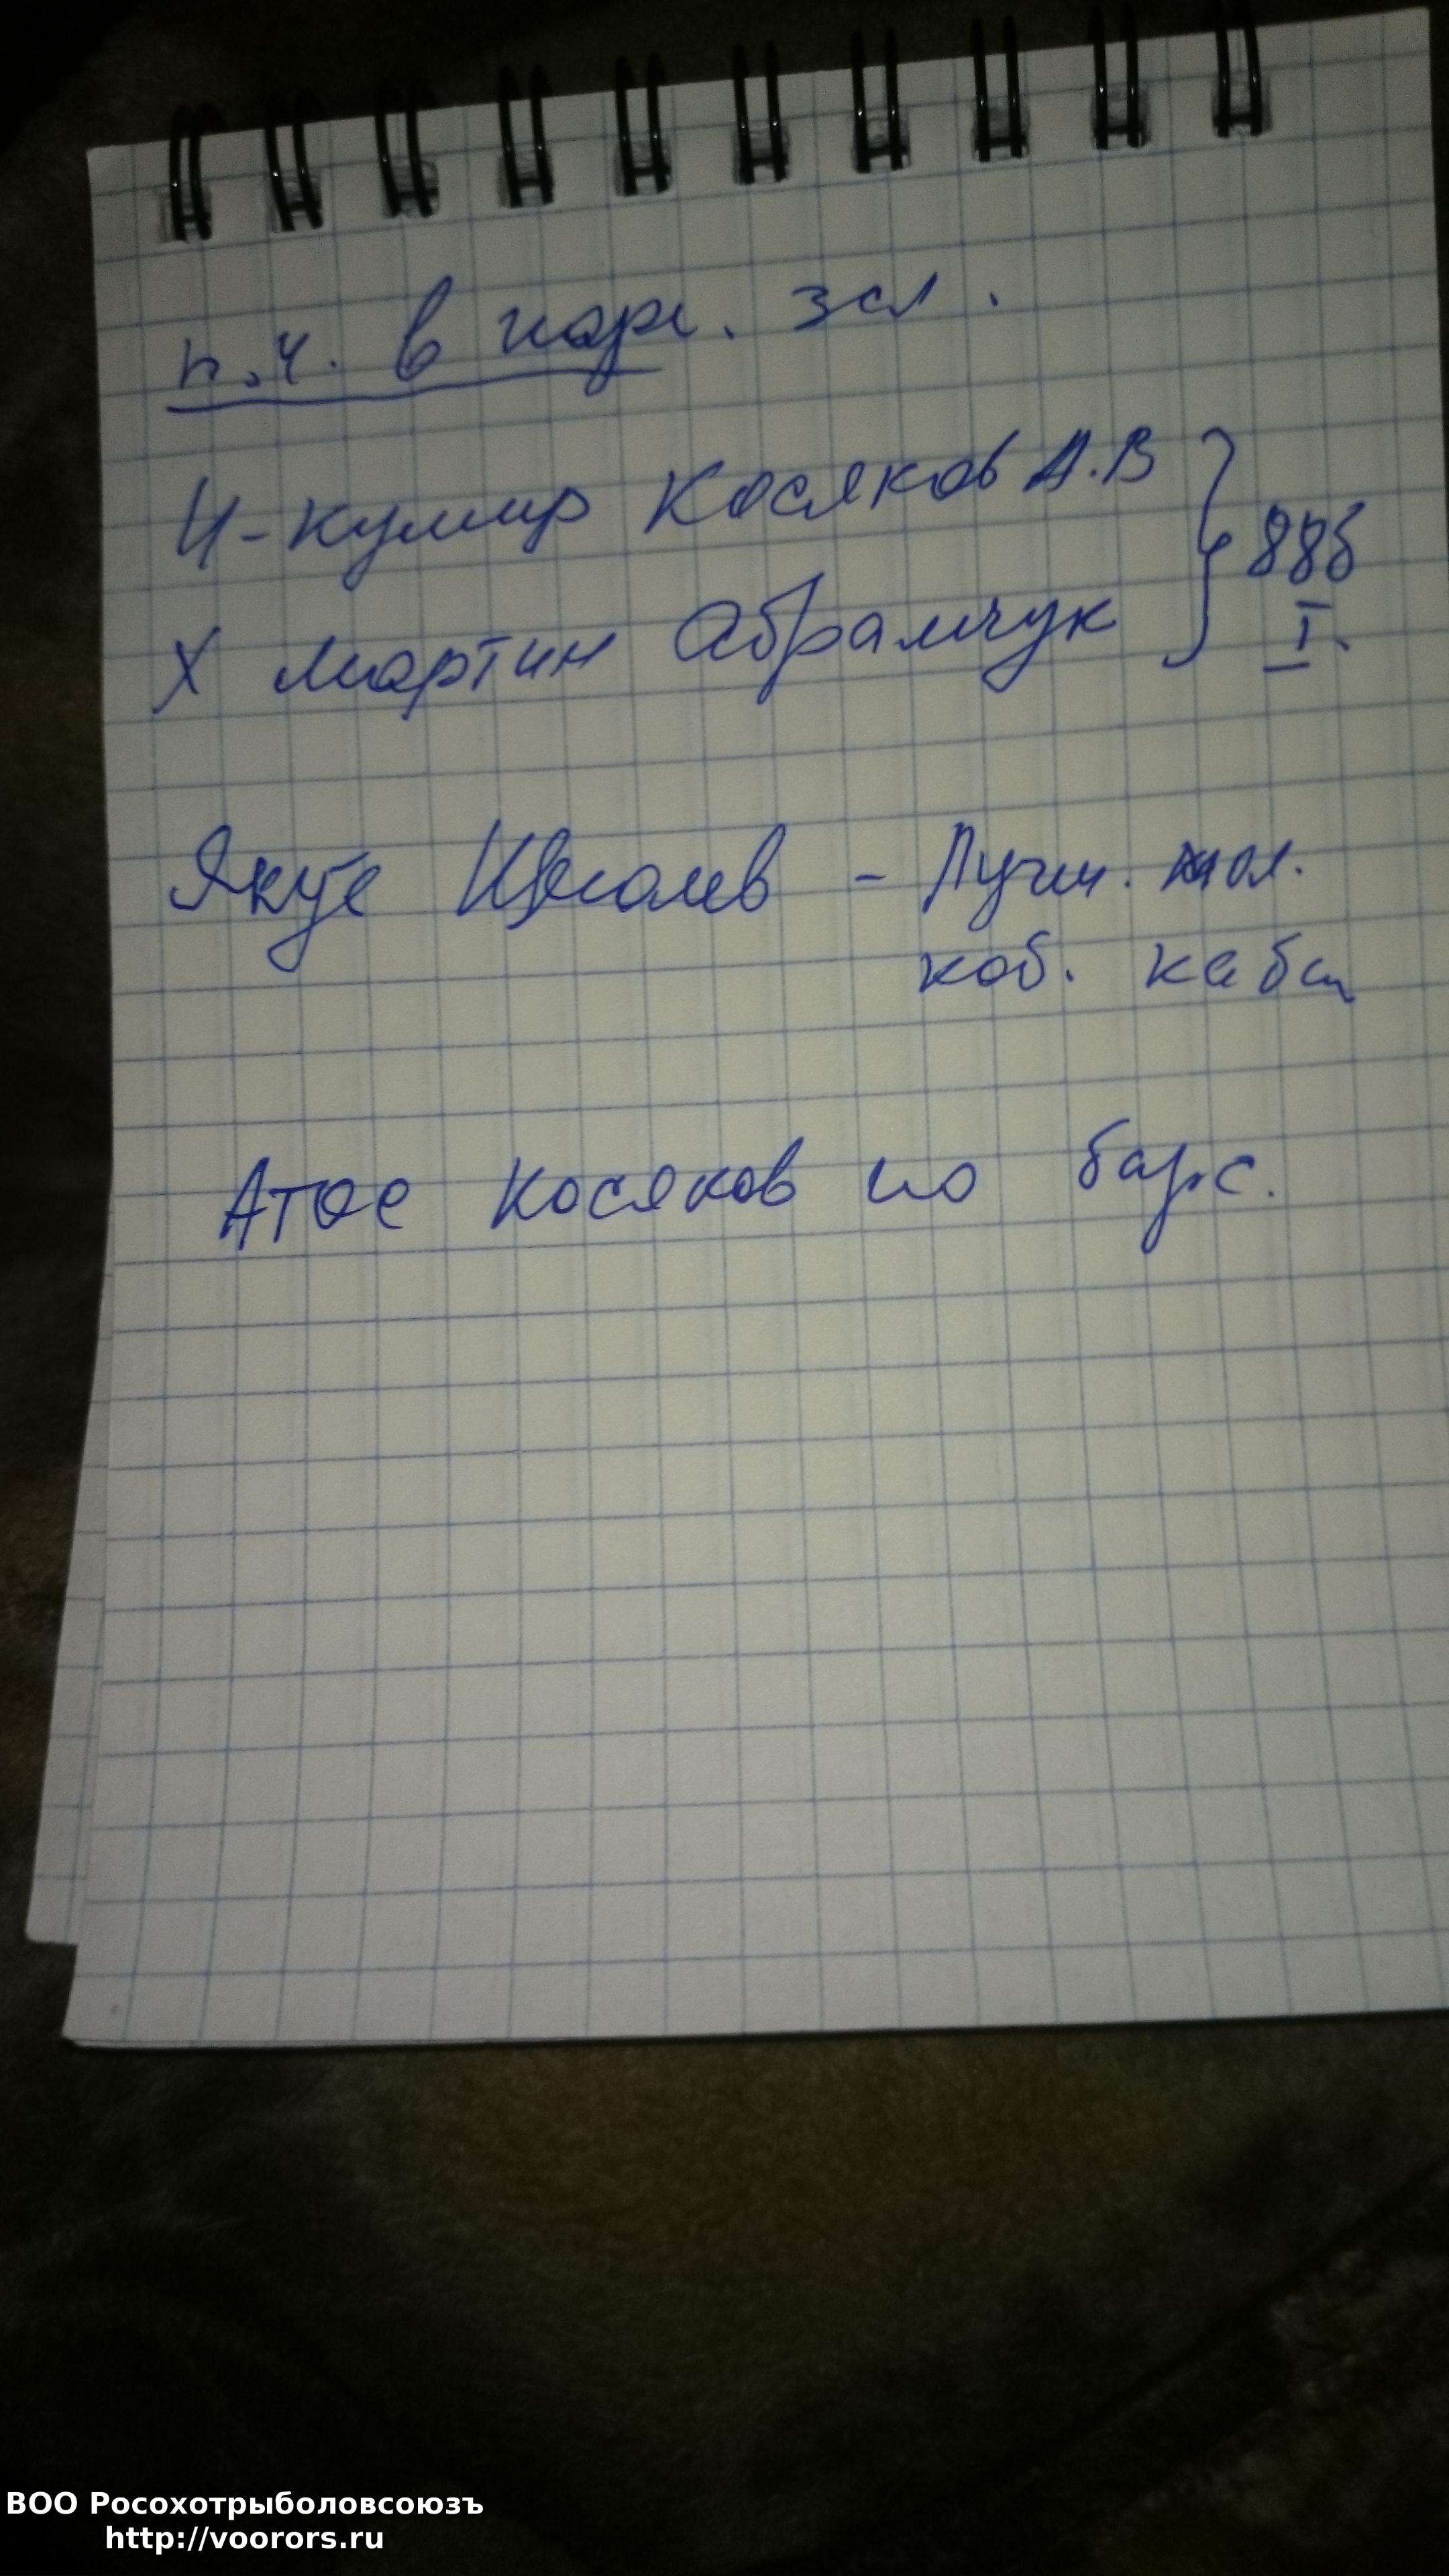 п.ч. в норе. зсл.
Ч-кумир Косяков А.В
Х мартин Абрамчук
88б
I.
Якуе - Лучш. мол.
коб. каба
Атос Косяков по барс.
ВОО Росохотрыболовсоюзъ
http://voorors.ru